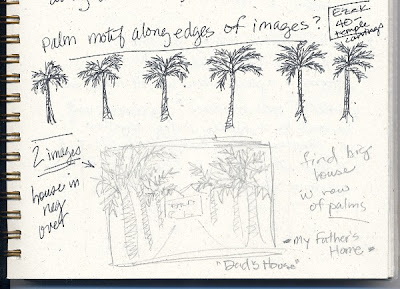 palm motif along edges of images?
Ezek
40-
temple
carvings
2 images
house in
neg
over
find big
house
w row
of palms
my Father's
Home
"Dad's House"